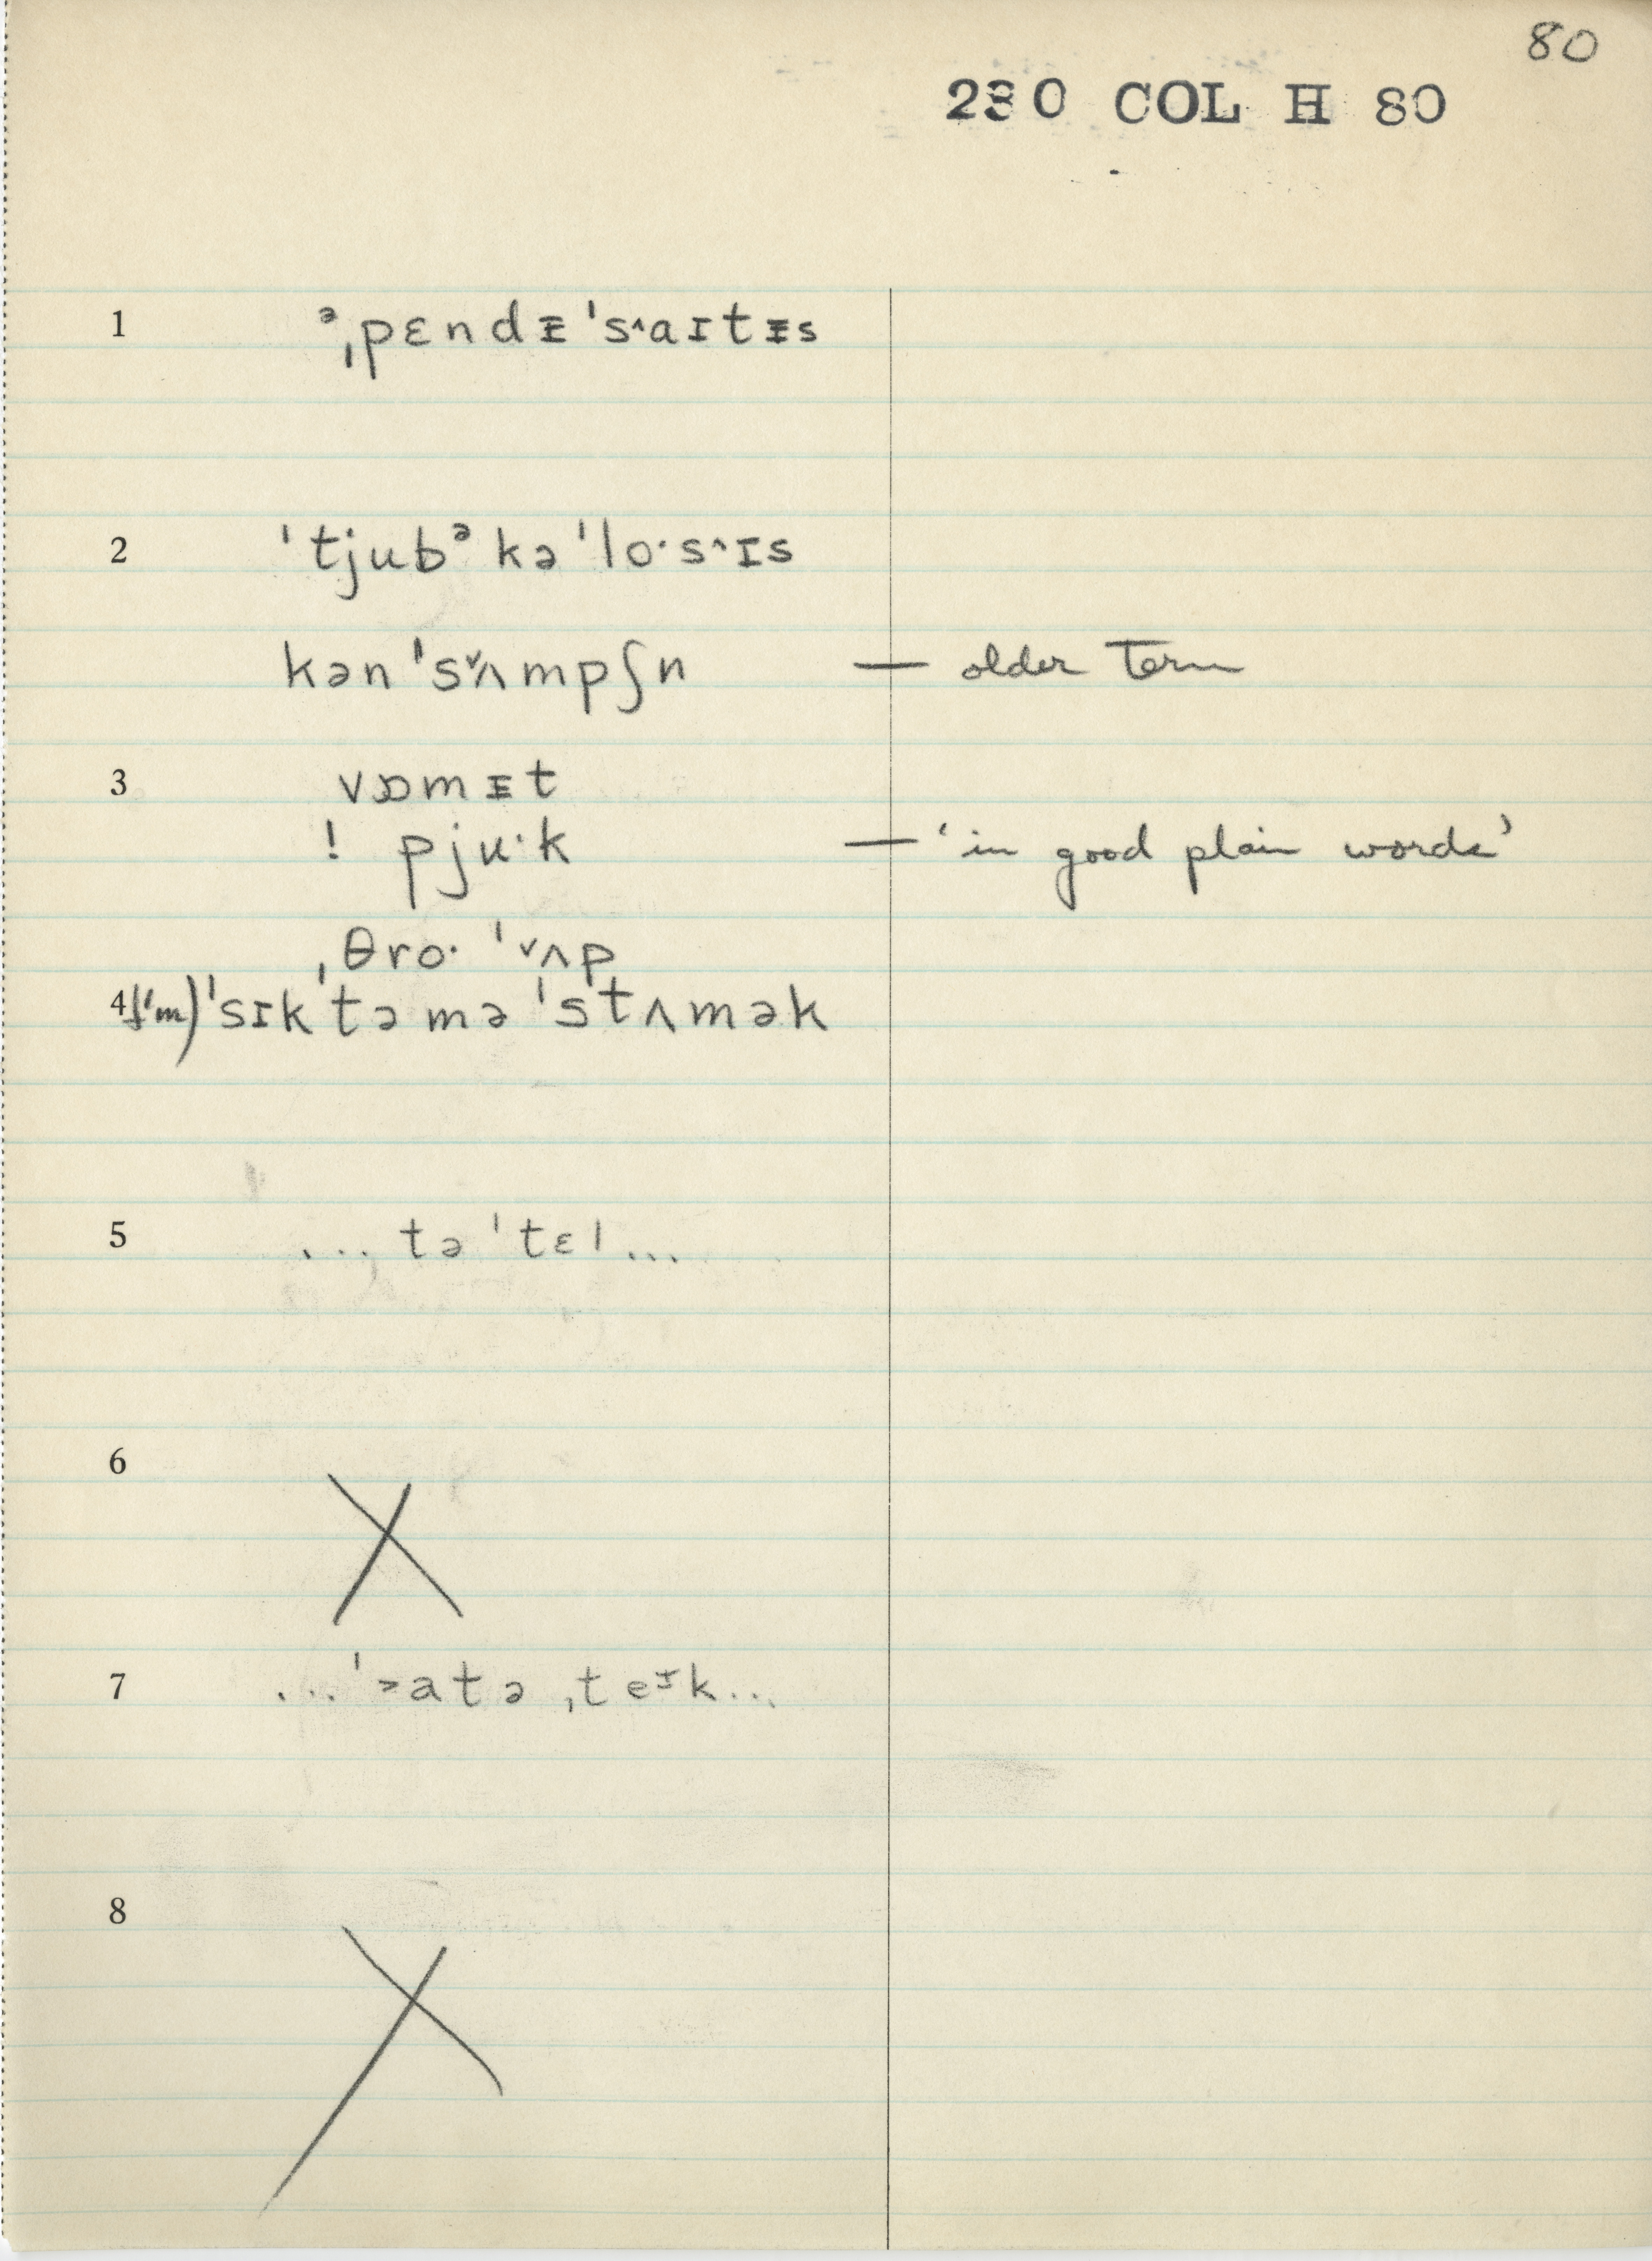 80
230 COL H 80
1 ᵊˌpɛndᵻˈs˄aɪtᵻs
2 ˈtjubᵊkəˈlo·s˄ɪs
kənˈs˅ʌmpʃn — older term
3 vɒmᵻt
! pju·k — ‘in good plain words’
ˌθro· ˈ˅ʌp
4 (I'm) ˈsɪk ˈtəməˈstʌmək
5 ... təˈtɛl ...
6
7 ... ˈ˃atəˌteᵻk ...
8